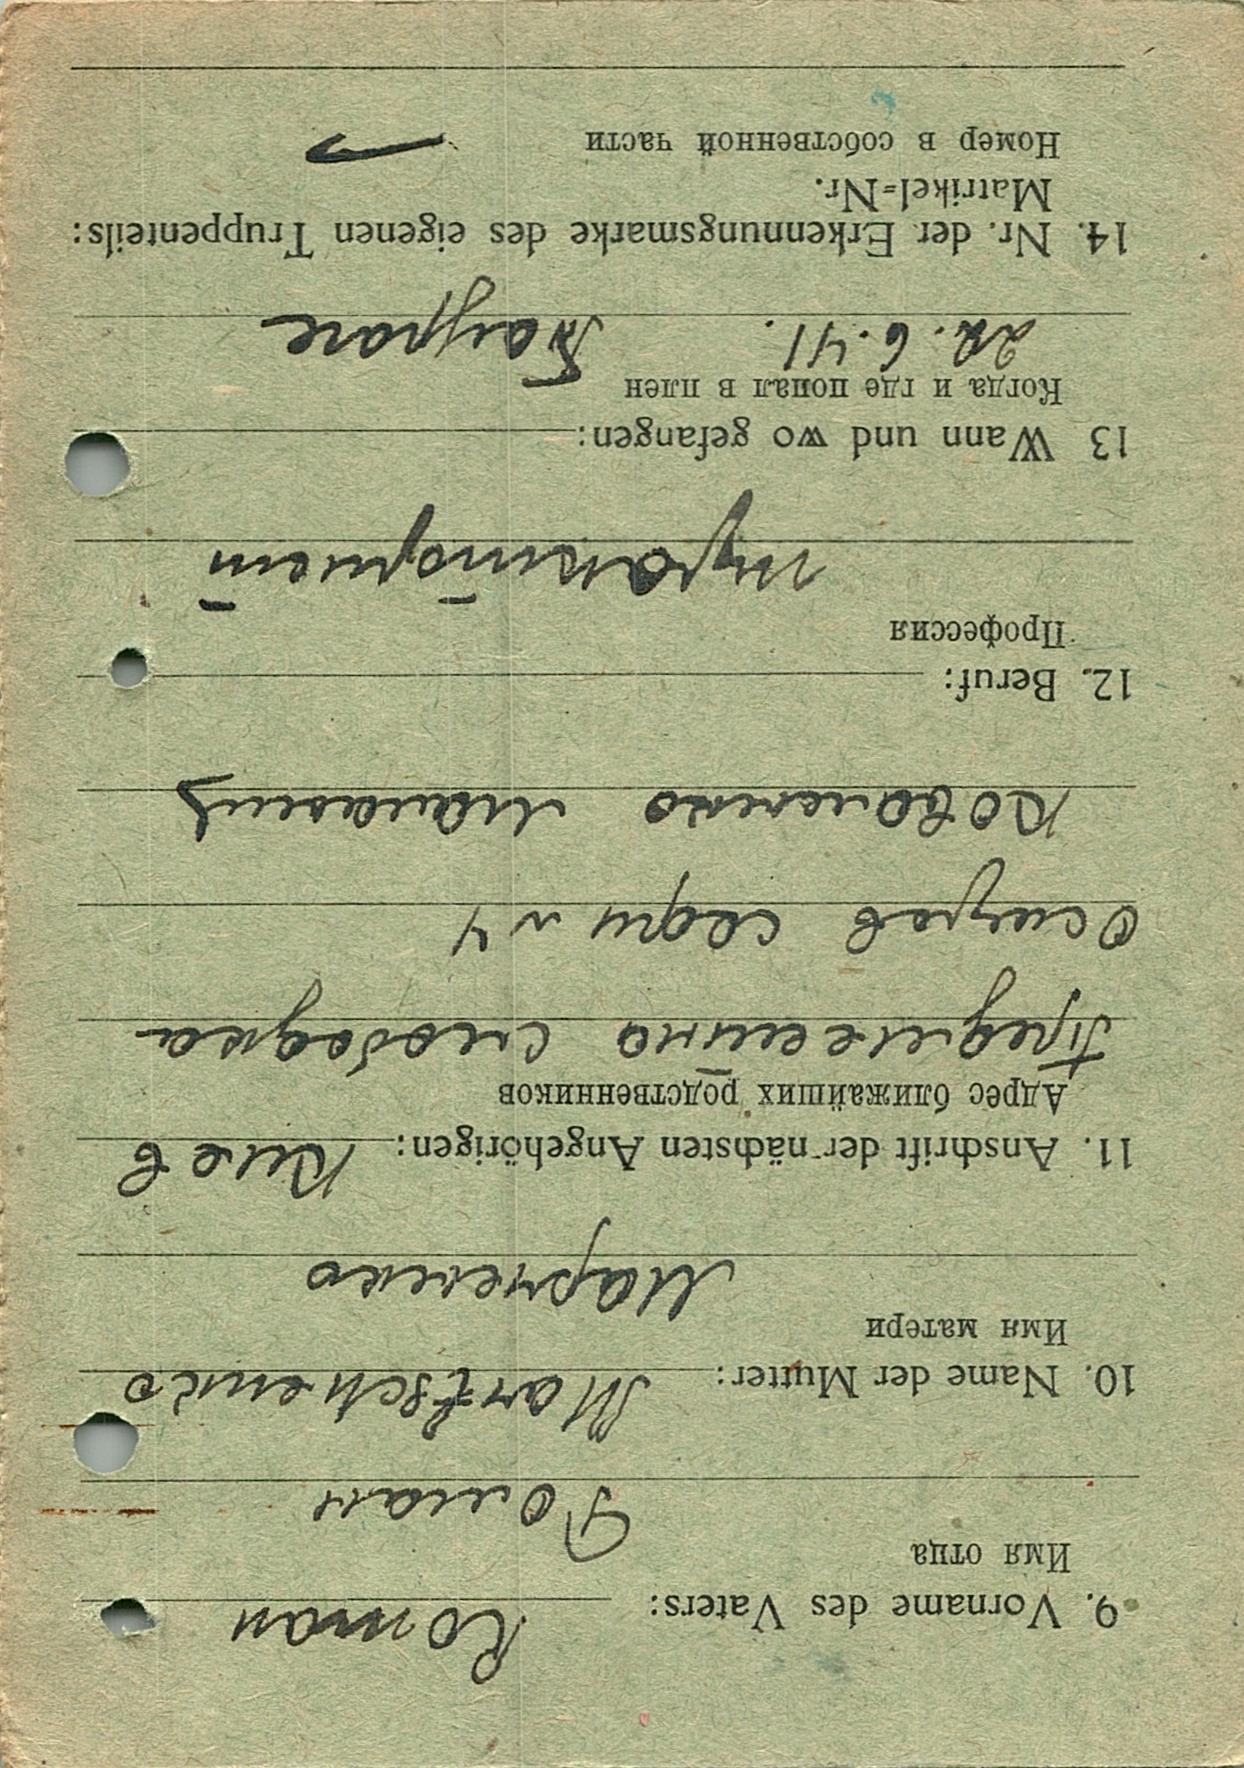 9. Vorname des Vaters: Roman
Имя отца
Роман
10. Name der Mutter: Martschenko
Имя матери
Марченко
11. Anschrift der nächsten Angehörigen: Киев
Адрес ближайших родственников
слободка
Осипов
Коваленко
12. Beruf:
Профессия
13 Wann und wo gefangen:
Когда и где попал в плен
22. 6. 41.
14. Nr. der Erkennungsmarke des eigenen Truppenteils:
Matrikel=Nr.
Номер в собственной части —